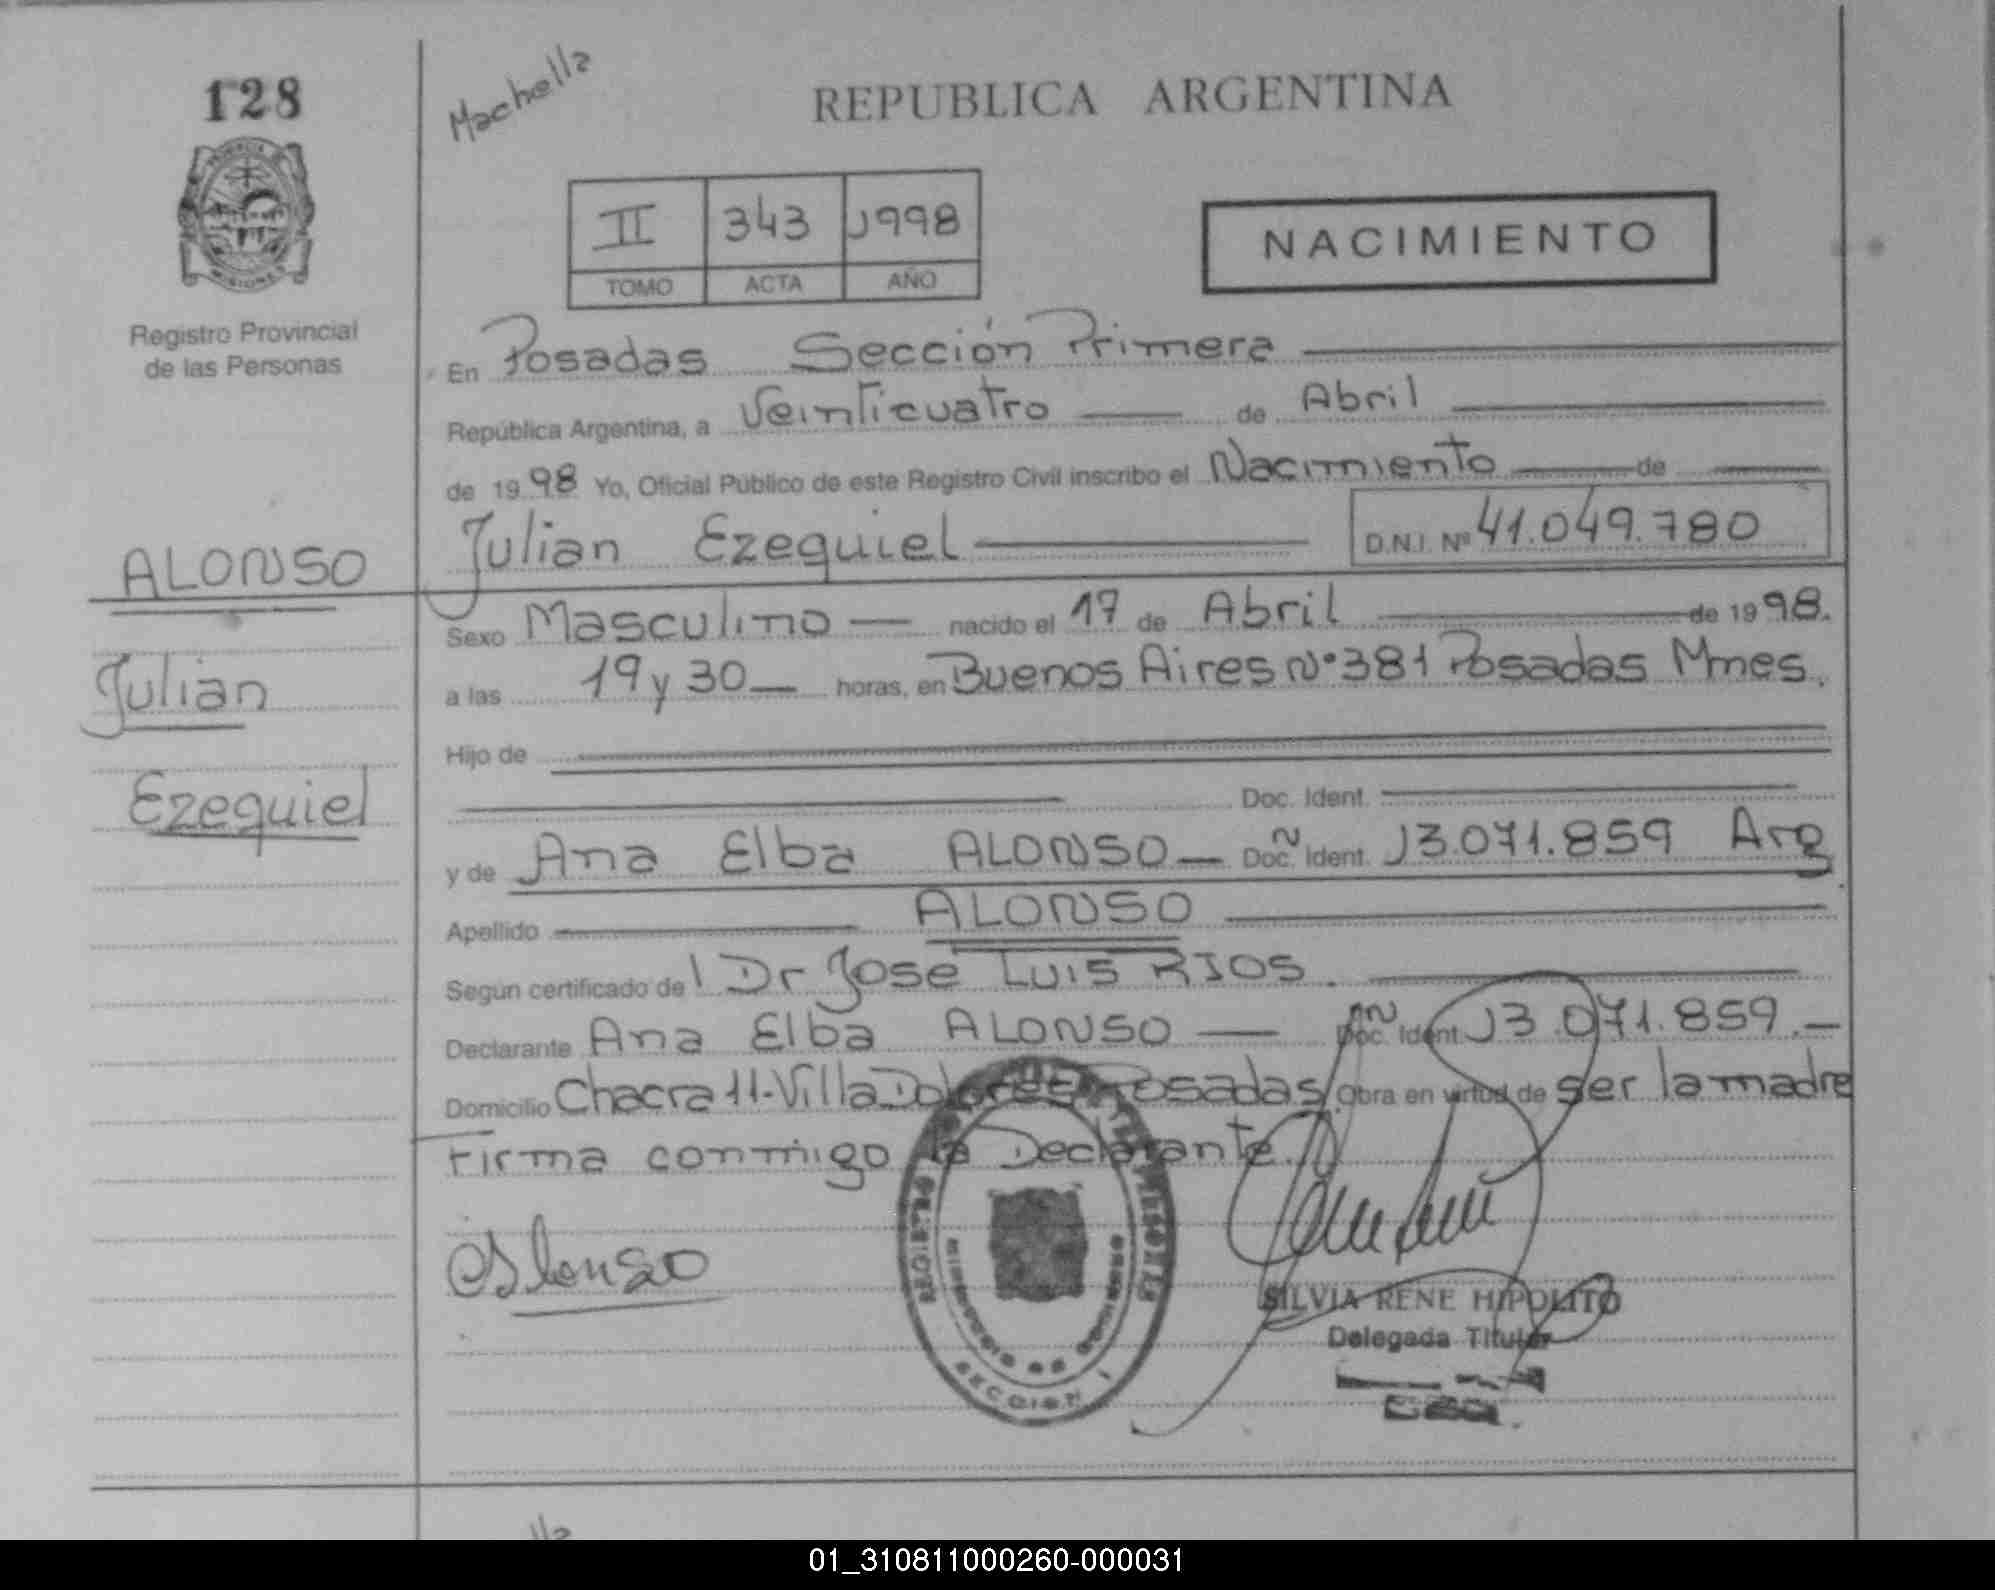 128
Machella
REPUBLICA ARGENTINA
PROVINCIA DE MISIONES
II 343 1998
TOMO ACTA AÑO
NACIMIENTO
Registro Provincial
de las Personas
En Posadas Sección Primera
República Argentina, a Veinticuatro de Abril
de 1998 Yo, Oficial Público de este Registro Civil inscribo el Nacimiento de
Julian Ezequiel D.N.I. Nº 41.049.780
ALONSO
Julian
Ezequiel
Sexo Masculino nacido el 17 de Abril de 1998.
a las 19 y 30 horas, en Buenos Aires Nº 381 Posadas Mnes.
Hijo de
Doc. Ident.
y de Ana Elba ALONSO Doc. Ident. 13.071.859 Arg
Apellido ALONSO
Según certificado del Dr Jose Luis RIOS.
Declarante Ana Elba ALONSO Doc. Ident. 13.071.859.
Domicilio Chacra 11-Villa Dolores Posadas Obra en virtud de ser la madre
Firma conmigo la Declarante.
Alonso
SECCION 1
SILVIA RENE HIPOLITO
Delegada Titular
01_310811000260-000031